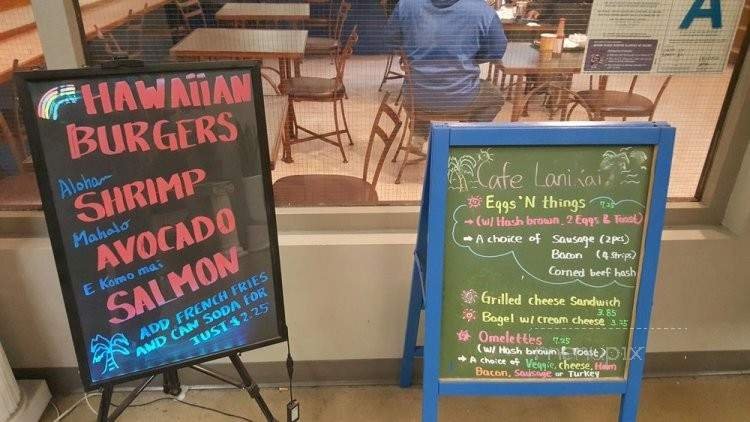 HAWAIIAN
BURGERS
Aloha
SHRIMP
Mahalo
AVOCADO
E Komo mai
SALMON
ADD FRENCH FRIES
AND CAN SODA FOR
JUST $2.25
A
Cafe Lanikai
Eggs 'N things 7.25
→ (w/ Hash brown, 2 Eggs & Toast)
→ A choice of Sausage (2pcs)
Bacon (4 strips)
Corned beef hash
Grilled cheese Sandwich
3.85
Bagel w/ cream cheese 3.25
Omelettes 7.25
(w/ Hash brown & Toast)
→ A choice of Veggie, cheese, Ham
Bacon, Sausage or Turkey